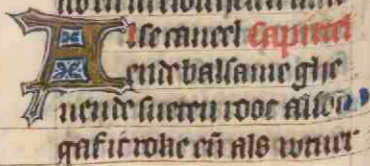 Alse caneel Capittel
ende balsame ghe
uende sueten rooc also
gaf ic roke eñ als wtuer